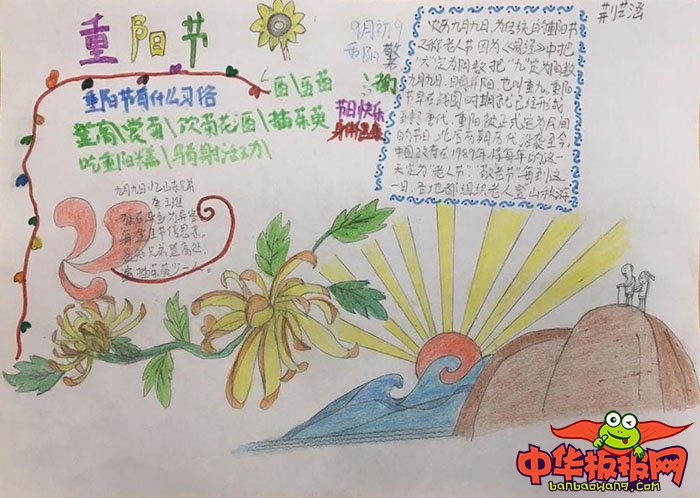 重阳节
重阳节有什么习俗
登高\赏菊\饮菊花酒\插茱萸
吃重阳糕\骑射活动\
九月九日忆山东兄弟
独在异乡为异客
每逢佳节倍思亲。
遥知兄弟登高处,
遍插茱萸少一人。
9月初9
重阳
节日快乐
身体健康
农历九月九日,为传统的重阳节
又称老人节因为《易经》中把
"六"定为阴数把"九"定为阳数
九月九日,日月并阳,也叫重九,重阳
节早在战国时期就已经形成,
到了唐代,重阳被正式定为民间
的节日,此后历朝历代沿袭至今,
中国政府在1989年,将每年的这一
天定为"老人节""敬老节"每到这
一日,各地都组织老人登山秋游
荆芸涵
中华板报网
banbaowang.com